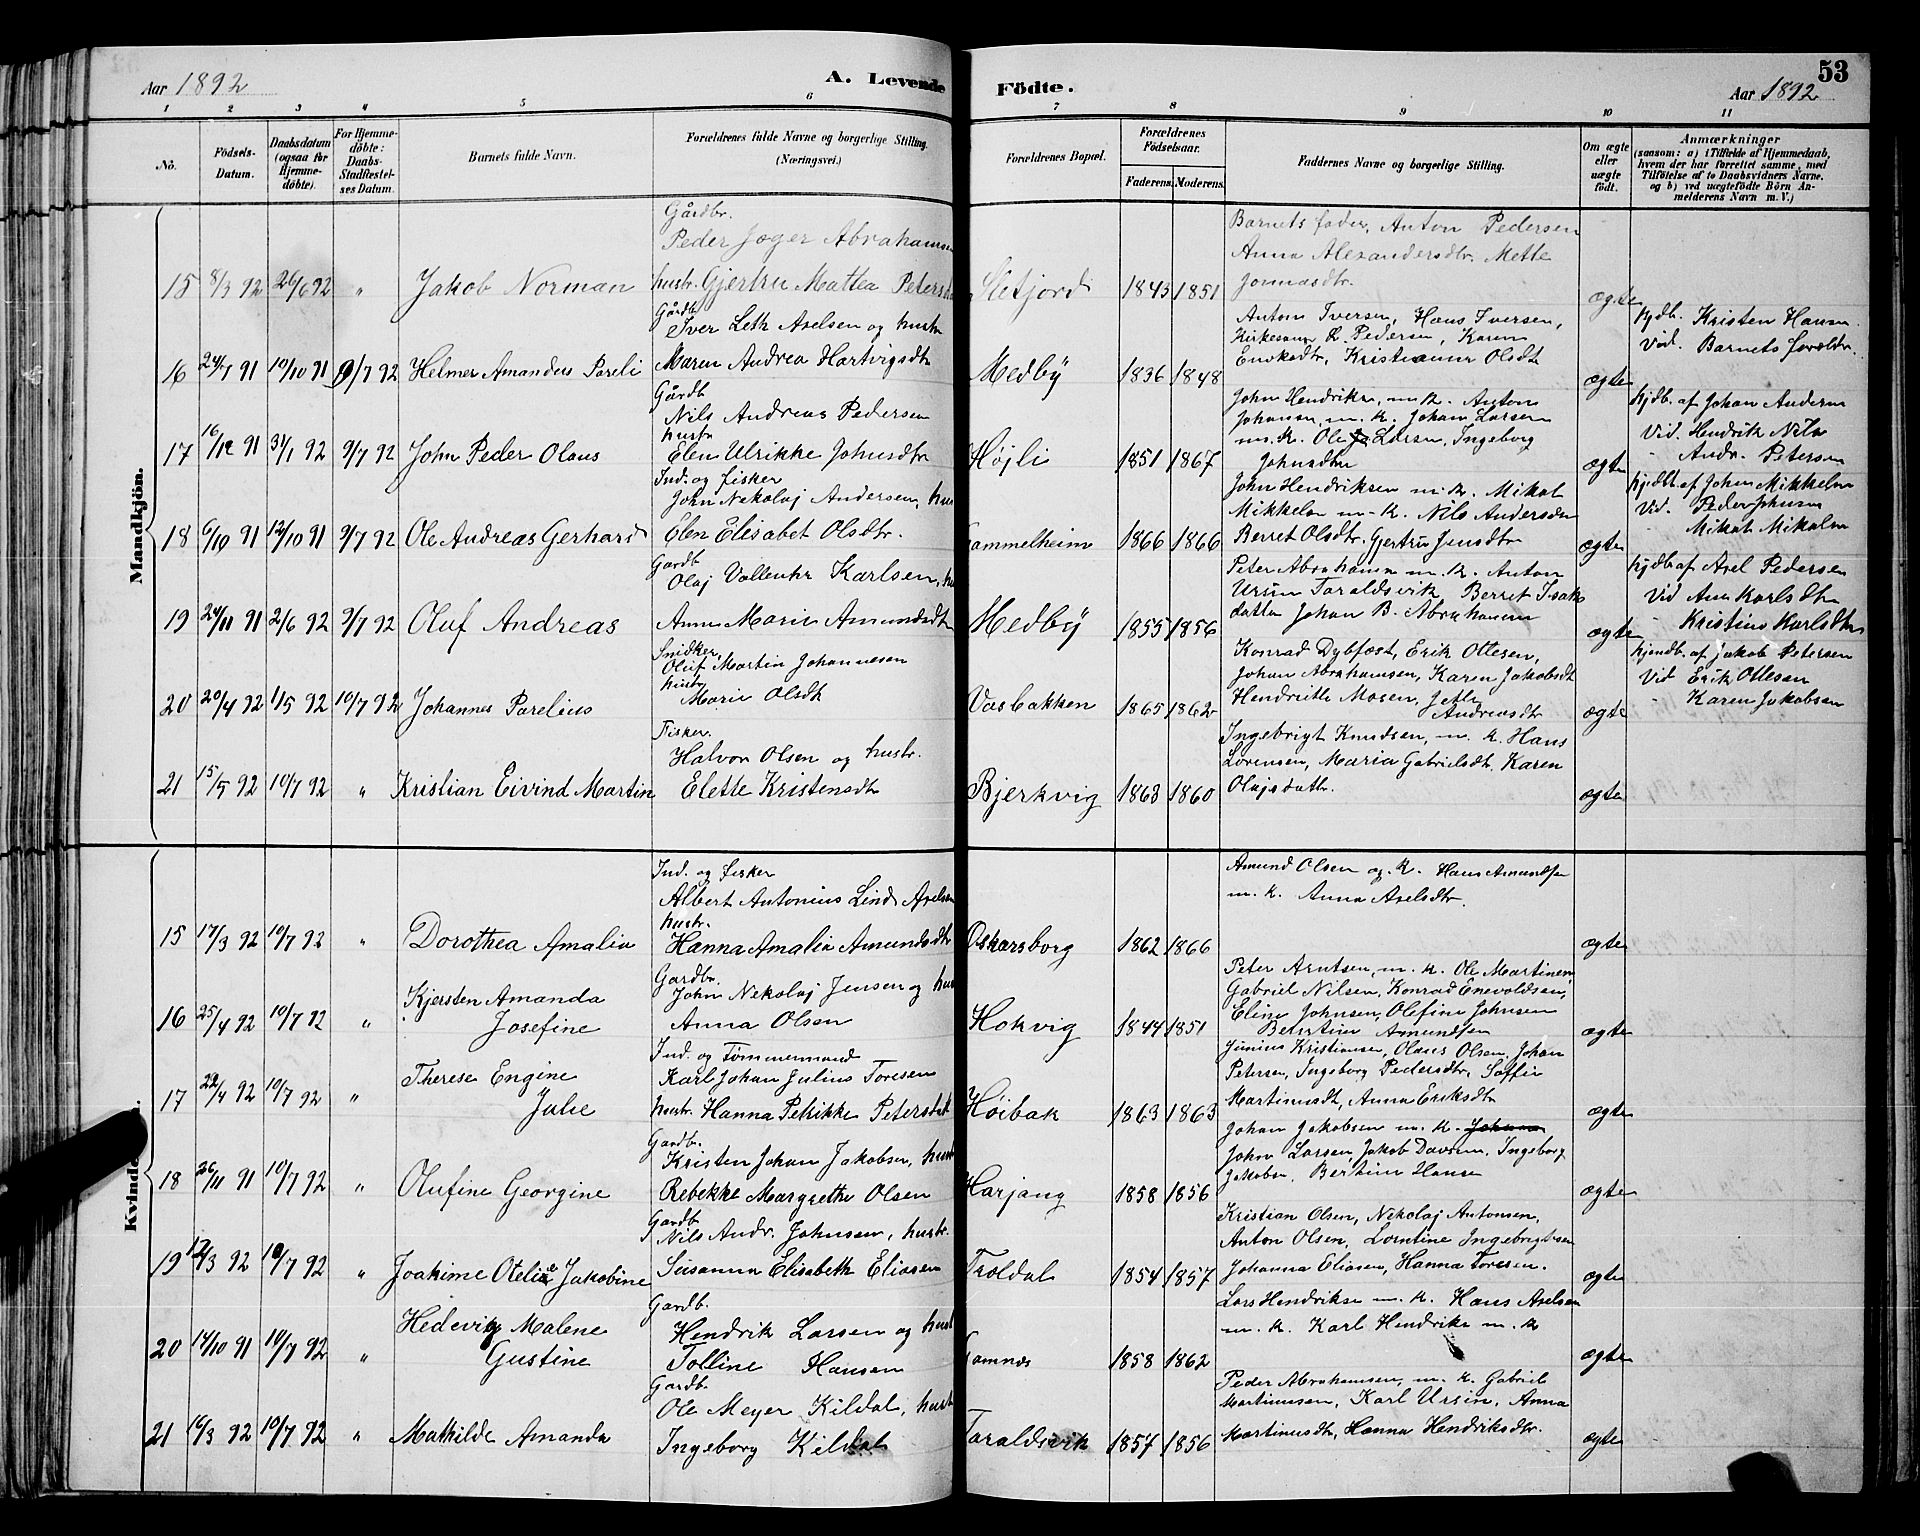 Aar 1892 A. Levende
1 2 3 4 5 6
No. Födsels-Datum. Daabsdatum (ogsaa for Hjemme-döbte). For Hjemme-döbte: Daabs-Stadfæstel-ses Datum. Barnets fulde Navn. Forældrenes fulde Navne og borgerlige Stilling. (Næringsvei.)
Mandkjön.
Gårdbr.
Peder Jæger Abrahamsen
15 8/3 92 26/6 92 " Jakob Norman hustr. Gjertru Mattea Petersdtr
Gårdb
Iver Leth Axelsen og hustr
16 24/7 91 10/10 91 9/7 92 Helmer Amandus Pareli Maren Andrea Hartvigsdtr
Gårdb
Nils Andreas Pedersen
hustr
17 16/12 91 31/1 92 9/7 92 John Peder Olaus Elen Ulrikke Johnsdtr
Ind. og fisker
John Nekolaj Andersen, hus
18 6/10 91 12/10 91 9/7 92 Ole Andreas Gerhard Elen Elisabet Olsdtr.
Gardb
Olaj Vollenhr Karlsen, hu
19 24/11 91 2/6 92 9/7 92 Oluf Andreas Anne Marie Amundsdtr
Snidker,
Oluf Martin Johannesen
hustr
20 20/4 92 1/5 92 10/7 92 Johannes Parelius Marie Olsdt
Fisker.
Halvor Olsen og hustr.
21 15/5 92 10/7 92 " Kristian Eivind Martin Elette Kristensdtr
Kvinde
Ind. og fisker
Albert Antonius Lind Axelsen
hustr.
15 17/3 92 10/7 92 " Dorothea Amalia Hanna Amalia Amundsdtr
Gardbr.
John Nekolaj Jensen og hus
Kjersten Amanda
16 25/4 92 10/7 92 " Josefine Anna Olsen
Ind. og Tømmermand
Therese Engine Karl Johan Julius Toresen
17 22/4 92 10/7 92 " Julie hustr. Hanna Petrikke Petersdtr
Gardbr.
Kristen Johan Jakobsen, hust
18 26/11 91 10/7 92 " Olufine Georgine Rebekke Margrethe Olsen
Gardb
Nils Andr. Johnsen, hustr.
19 12/3 92 10/7 92 " Joakime Otelie Jakobine Susanna Elisabeth Eliasen
Gardb.
Hedevig Malene Hendrik Larsen og hust
20 14/10 91 10/7 92 " Gustine Tolline Hansen
Gardb.
Ole Meyer Kildal, hust
21 16/3 92 10/7 92 " Mathilde Amanda Ingeborg Kildal
Födte. 53
Aar 1892
7 8 9 10 11
Forældrenes Bopæl. Forældrenes Födselsaar. Faderens. Moderens. Faddernes Navne og borgerlige Stilling. Om ægte eller uægte födt. Anmærkninger (saasom: a) i Tilfælde af Hjemmedaab, hvem der har forrettet samme, med Tilföielse af to Daabsvidners Navne. og b) ved uægtefödte Börn Anmelderens Navn m. V.)
Barnets fader, Anton Pedersen
Anna Alexandersdtr. Mette
Sletjord 1843 1851 Jonnasdtr. ægte
Anton Iversen, Hans Iversen,
Kirkesanger R. Pedersen, Karen
Medby 1836 1848 Enoksdtr, Kristianne Olsdt ægte
hjdb. Kristen Hansen
Vid. Barnets foreldr.
John Hendrikse, m. K. Anton
Johansen m. K. Johan Larsen
m. K. Ole Larsen, Ingeborg
Højli 1851 1867 Johnsdtr ægte
hjdb. af Johan Andersen
Vid. Hendrik Nils
" Andr. Petersen
John Hendriksen m. K. Mikal
Mikkelsen m. K. Nils Andersen
Gammelheim 1866 1866 Berret Olsdtr. Gjertru Jensdtr ægte
hjdb. af Johan Mikkelsen
Vid. Peder Johnsen
" Mikal Mikalsen
Peter Abrahamsen m. K. Anton
Ursin Taraldsvik Berret Isaks
datter Johan B. Abrahamsen
Medby 1855 1856 ægte
hjdb af Axel Pedersen
Vid Ane Karlsdtr
" Kristine Karlsdtr
Konrad Dybfest, Erik Ottesen,
Johan Abrahamsen, Karen Jakobsdt
Hendritte Mosen, Jette
Vasbakken 1865 1862 Andreasdtr ægte
hjemdb. af Jakob Petersen
Vid Erik Ottesen
" Karen Jakobsen
Ingebrigt Knudsen, m. K. Hans
Lorensen, Maria Gabrielsdt. Karen
Bjerkvig 1863 1860 Olajsdattr. ægte
Amund Olsen og K. Hans Amundsen
m. K. Anna Axelsdtr.
Oskarsborg 1862 1866 ægte
Peter Arntsen, m. K. Ole Martinsen
Gabriel Nilsen, Konrad Enevoldsen,
Eline Johnsen, Olefine Johnsen
Hokvig 1844 1851 Berntine Amundsen ægte
Junius Kristiansen, Olaus Olsen, Johan
Petersen, Ingeborg Pedersdtr, Soffie
Høibak 1863 1863 Martinusdt, Anna Eriksdtr ægte
Johan Jakobsen m. K. Johnna
John Larsen, Jakob Davsen, Ingeborg
Harjang 1858 1856 Jakobsen, Bertine Hansen ægte
Kristian Olsen, Nekolaj Antonsen,
Anton Olsen, Lorntine Ingebrigtsen
Troldal 1854 1857 Johanna Eliasen, Hanna Toresen. ægte
Lars Hendrikse m. K. Hans Axelsen
m. K. Karl Hendrikse m. K
1858 1862 ægte
Peder Abrahamsen, m. K. Gabriel
Martinussen, Karl Ursin, Anna
Taraldsvik 1857 1856 Martinusdt, Hanna Hendriksdtr. ægte